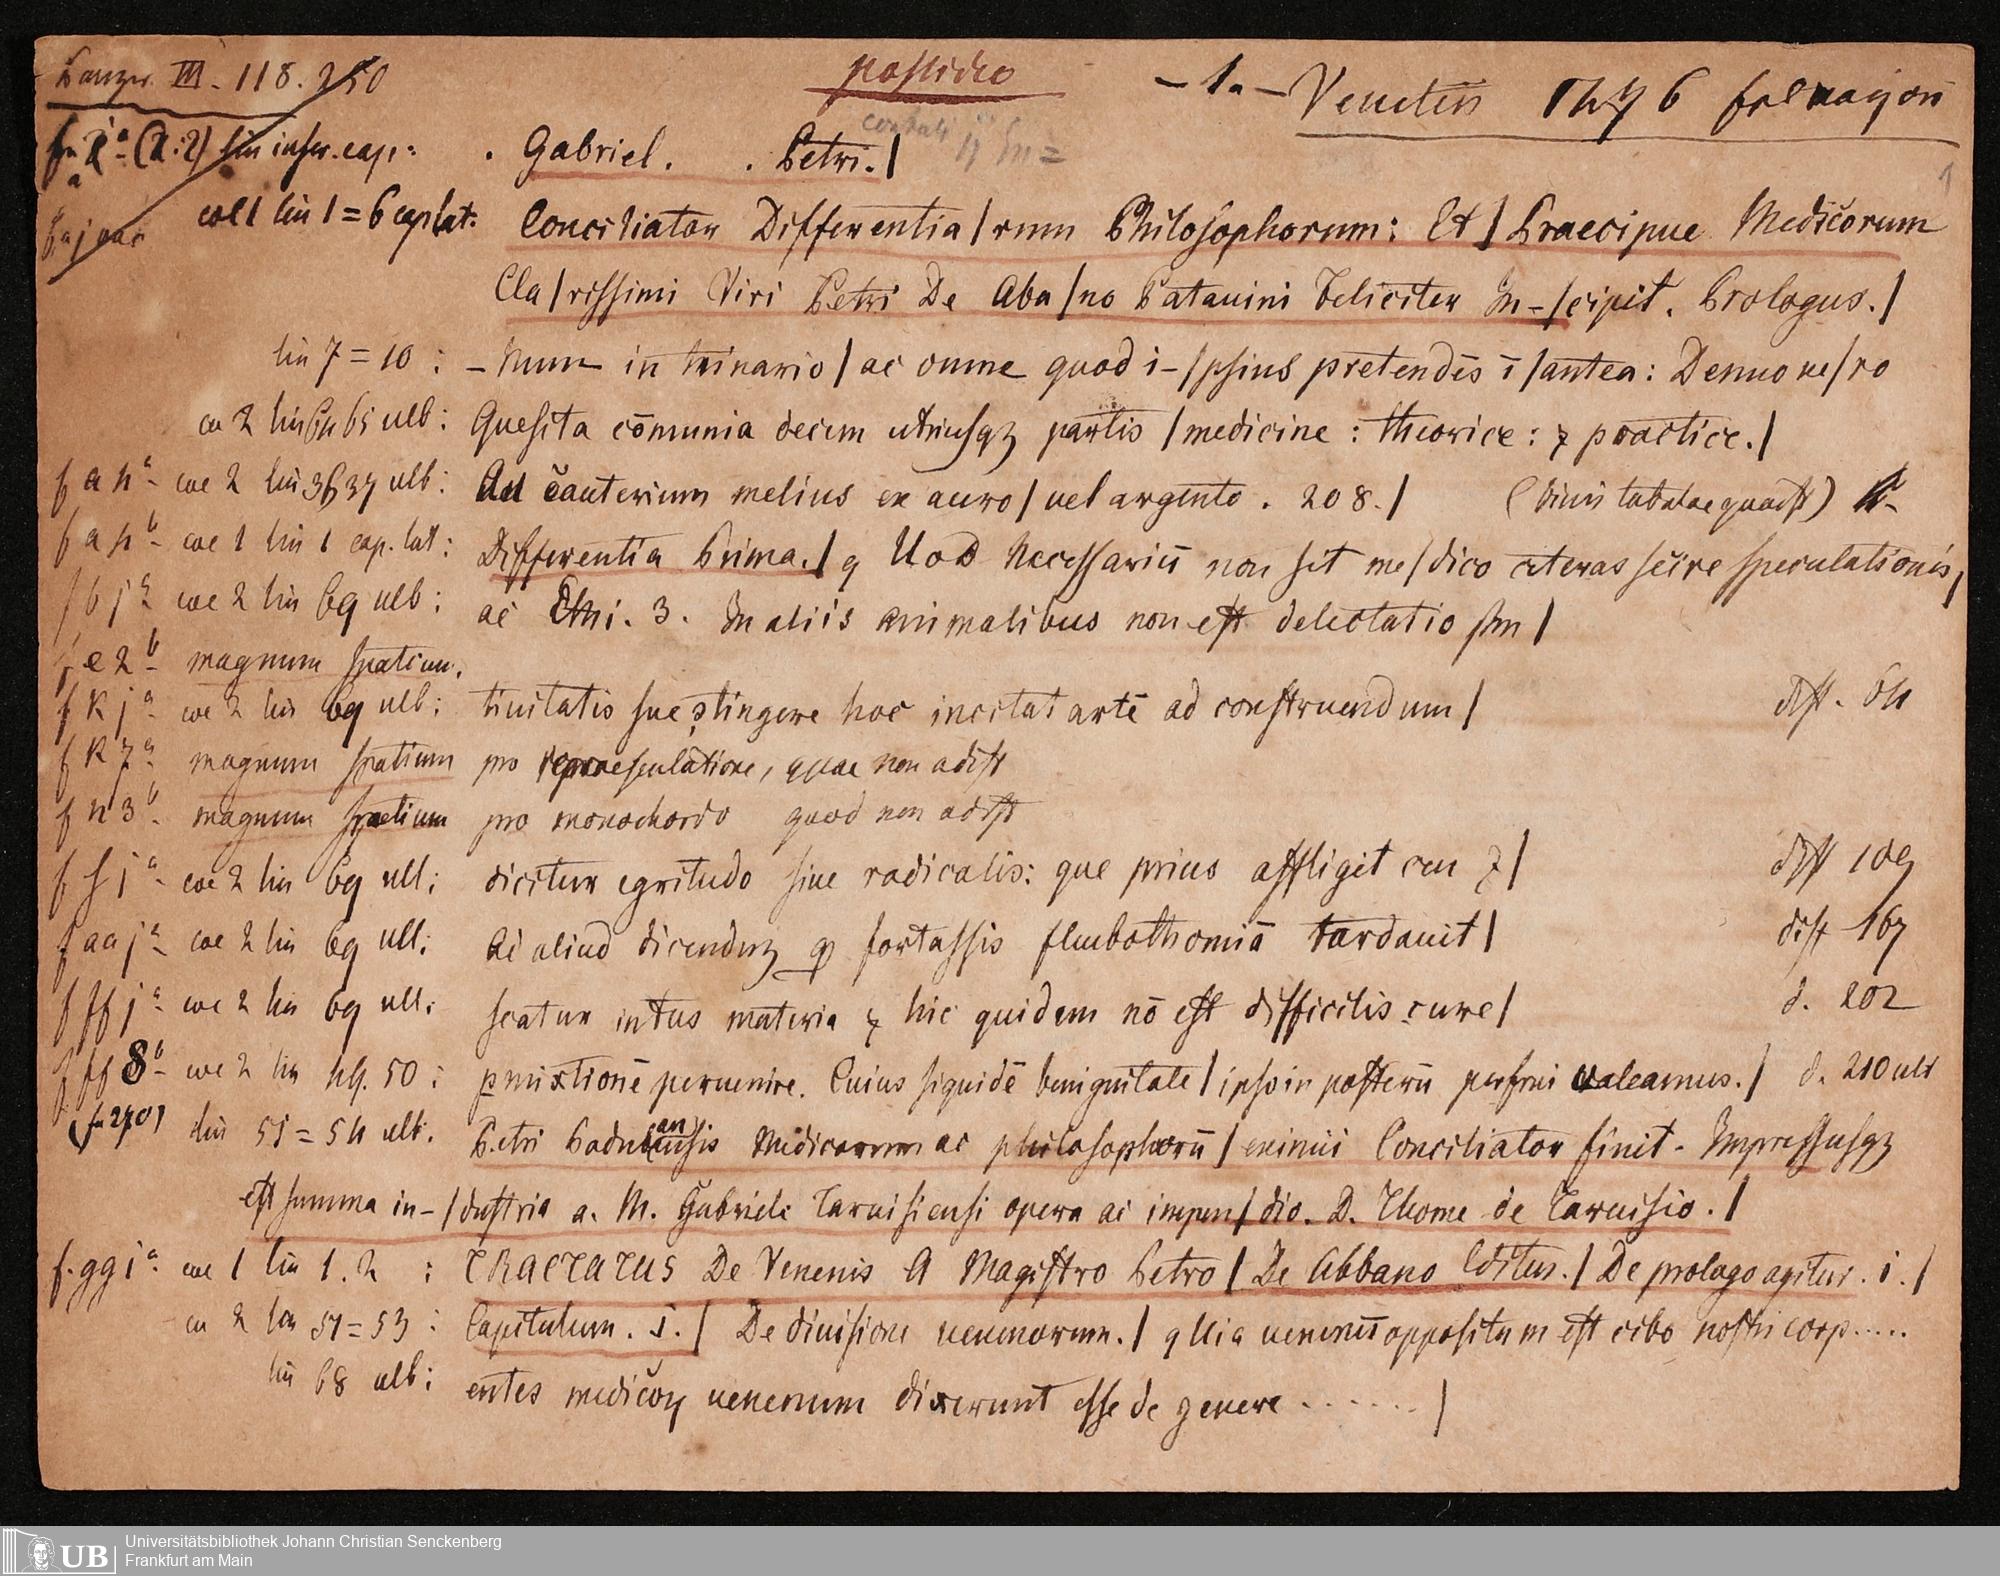 Panzer. III - 118. 250
possideo
- 1. - Venetiis 1476 fol major
f. 2 a (2:2) lin infer. cap: . Gabriel. . Petri. |
col 1 lin 1 = 6 cap lat: Conciliator Differentia | rum Philosophorum: Et | Praecipue Medicorum
Cla | rissimi Viri Petri De Aba | no Patauini Feliciter In- | cipit. Prologus. |
lin 7 = 10 : - Num in trinario | ac omne quod i- | psius pretendēs ī | antea: Demū ue | ro
co 2 lin 64 65 ult: Quesita cōmunia decem utriusqz partis | medicine : theorice : z practice. |
f a 4 a co 2 lin 36 37 ult: Ad cauterium melius ex auro | uel argento . 208. |
f a 4 b col 1 lin 1 cap. lat: Differentia Prima. | q UoD Necessariū non sit me | dico ceteras scire speculationis,
f b j a co 2 lin 69 ult: ac Ethi. 3. In aliis animalibus non est delectatio sm |
f e 2 b magnum spatium.
f k j a co 2 lin 69 ult: tiuitatis sue stingere hoc incitat artē ad construendum | diff. 64
f k 7 a magnum spatium pro repraesentatione, quae non adest
f n 3 b magnum spatium pro monochordo quod non adest
f s j a co 2 lin 69 ult: dicitur egritudo siue radicalis: que prius affligit ceu z | diff 109
f aa j a co 2 lin 69 ult: Ad aliud dicenduz q fortassis flaubothomiā tardauit | diff 167
f ff j a co 2 lin 69 ult: scatur intus materia z hic quidem nō est difficilis cure | d. 202
f ff 8 b co 2 lin 49. 50 : pmixtionē peruenire. Cuius siquidē benignitate | ipso in posterū perfrui ualeamus. | d. 210 ult
lin 51 = 54 ult. Petri Paduanensis Medicorum ac philosophorū | eximii Conciliator finit. Impressusqz
est summa in- | dustria a. M. Gabriele Taruisiensi opera ac impen | dio. D. Thome de Taruisio. |
f. gg 1 a col 1 lin 1. 2 : TRACTATUS De Venenis A Magistro Petro | De Abbano Editus. | De prologo agitur. i. |
co 2 lin 51 = 53 : Capitulum. i. | De diuisione uenenorum. | q Uia uenenū oppositum est cibo nostri corp.....
lin 68 ult: entes medicoꝝ uenenum dixerunt esse de genere ...... |
Universitätsbibliothek Johann Christian Senckenberg
Frankfurt am Main
UB